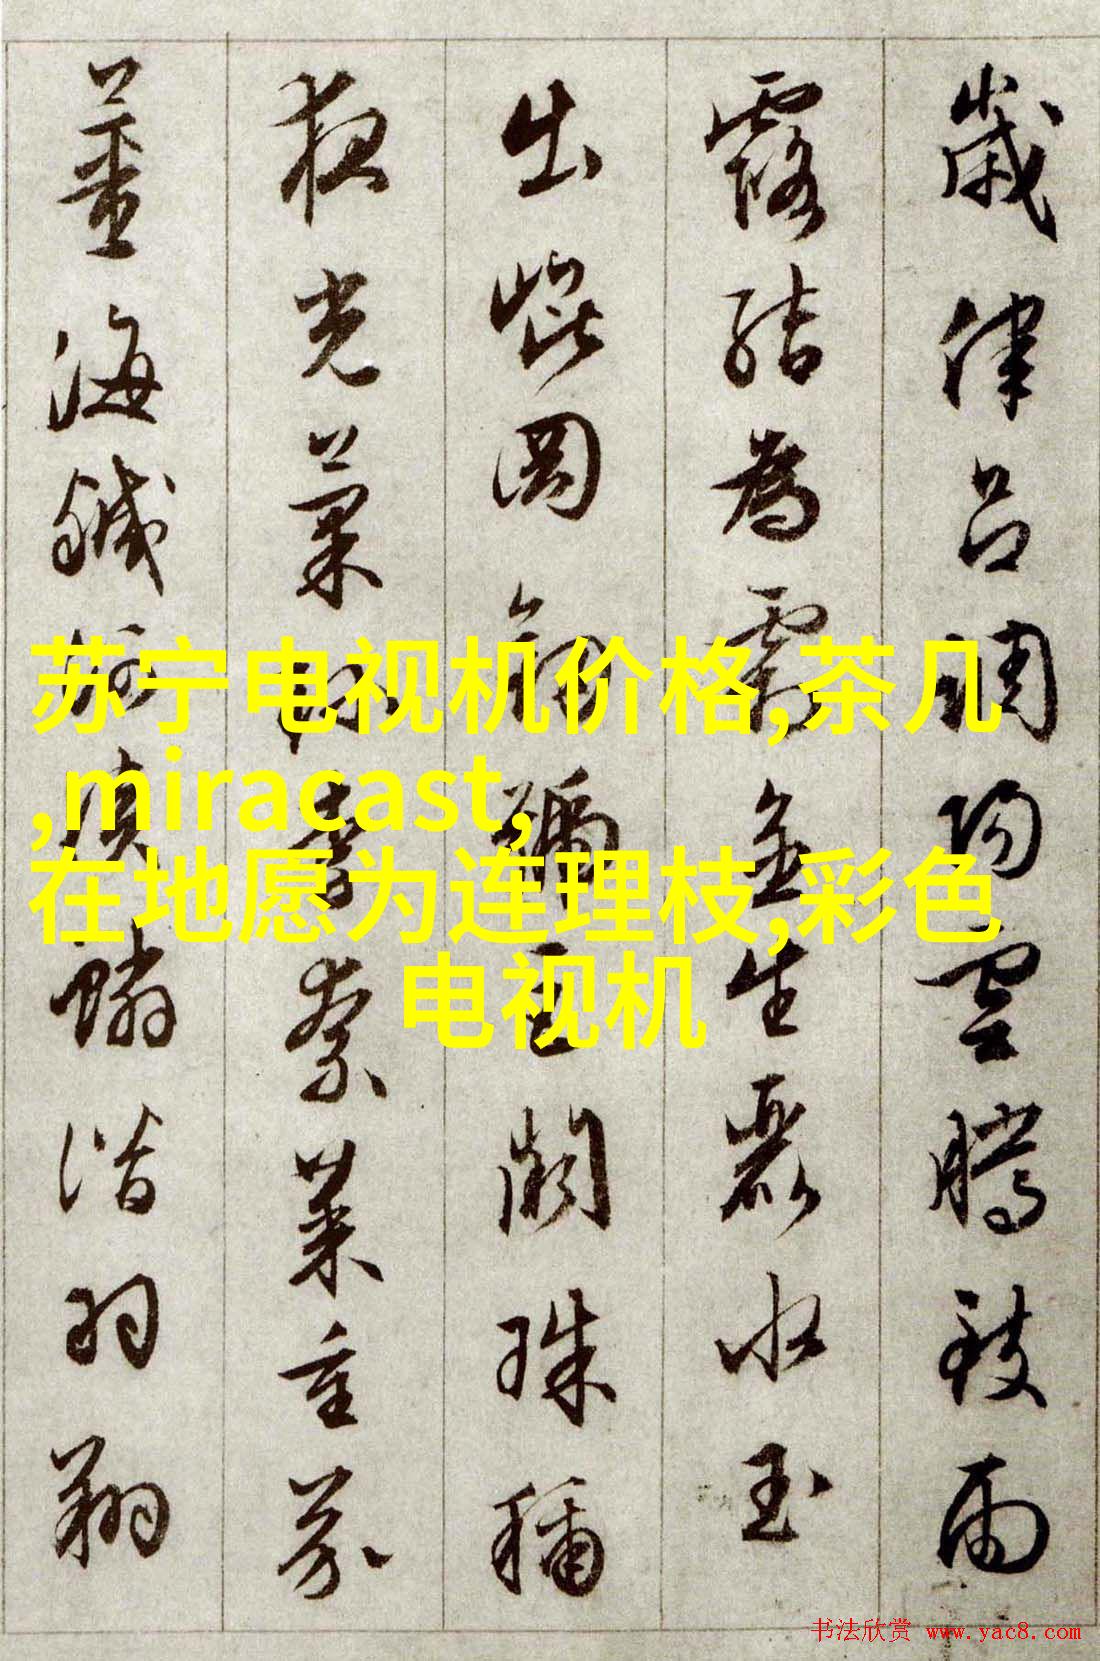 歲律呂調陽雲騰致雨
露結為霜金生麗水玉
出崐岡劍號巨闕珠稱
夜光菓珍李柰菜重芥
薑海鹹河淡鱗潛羽翔
苏宁电视机价格,茶几
,miracast,
在地愿为连理枝,彩色
电视机
书法欣赏 www.yac8.com